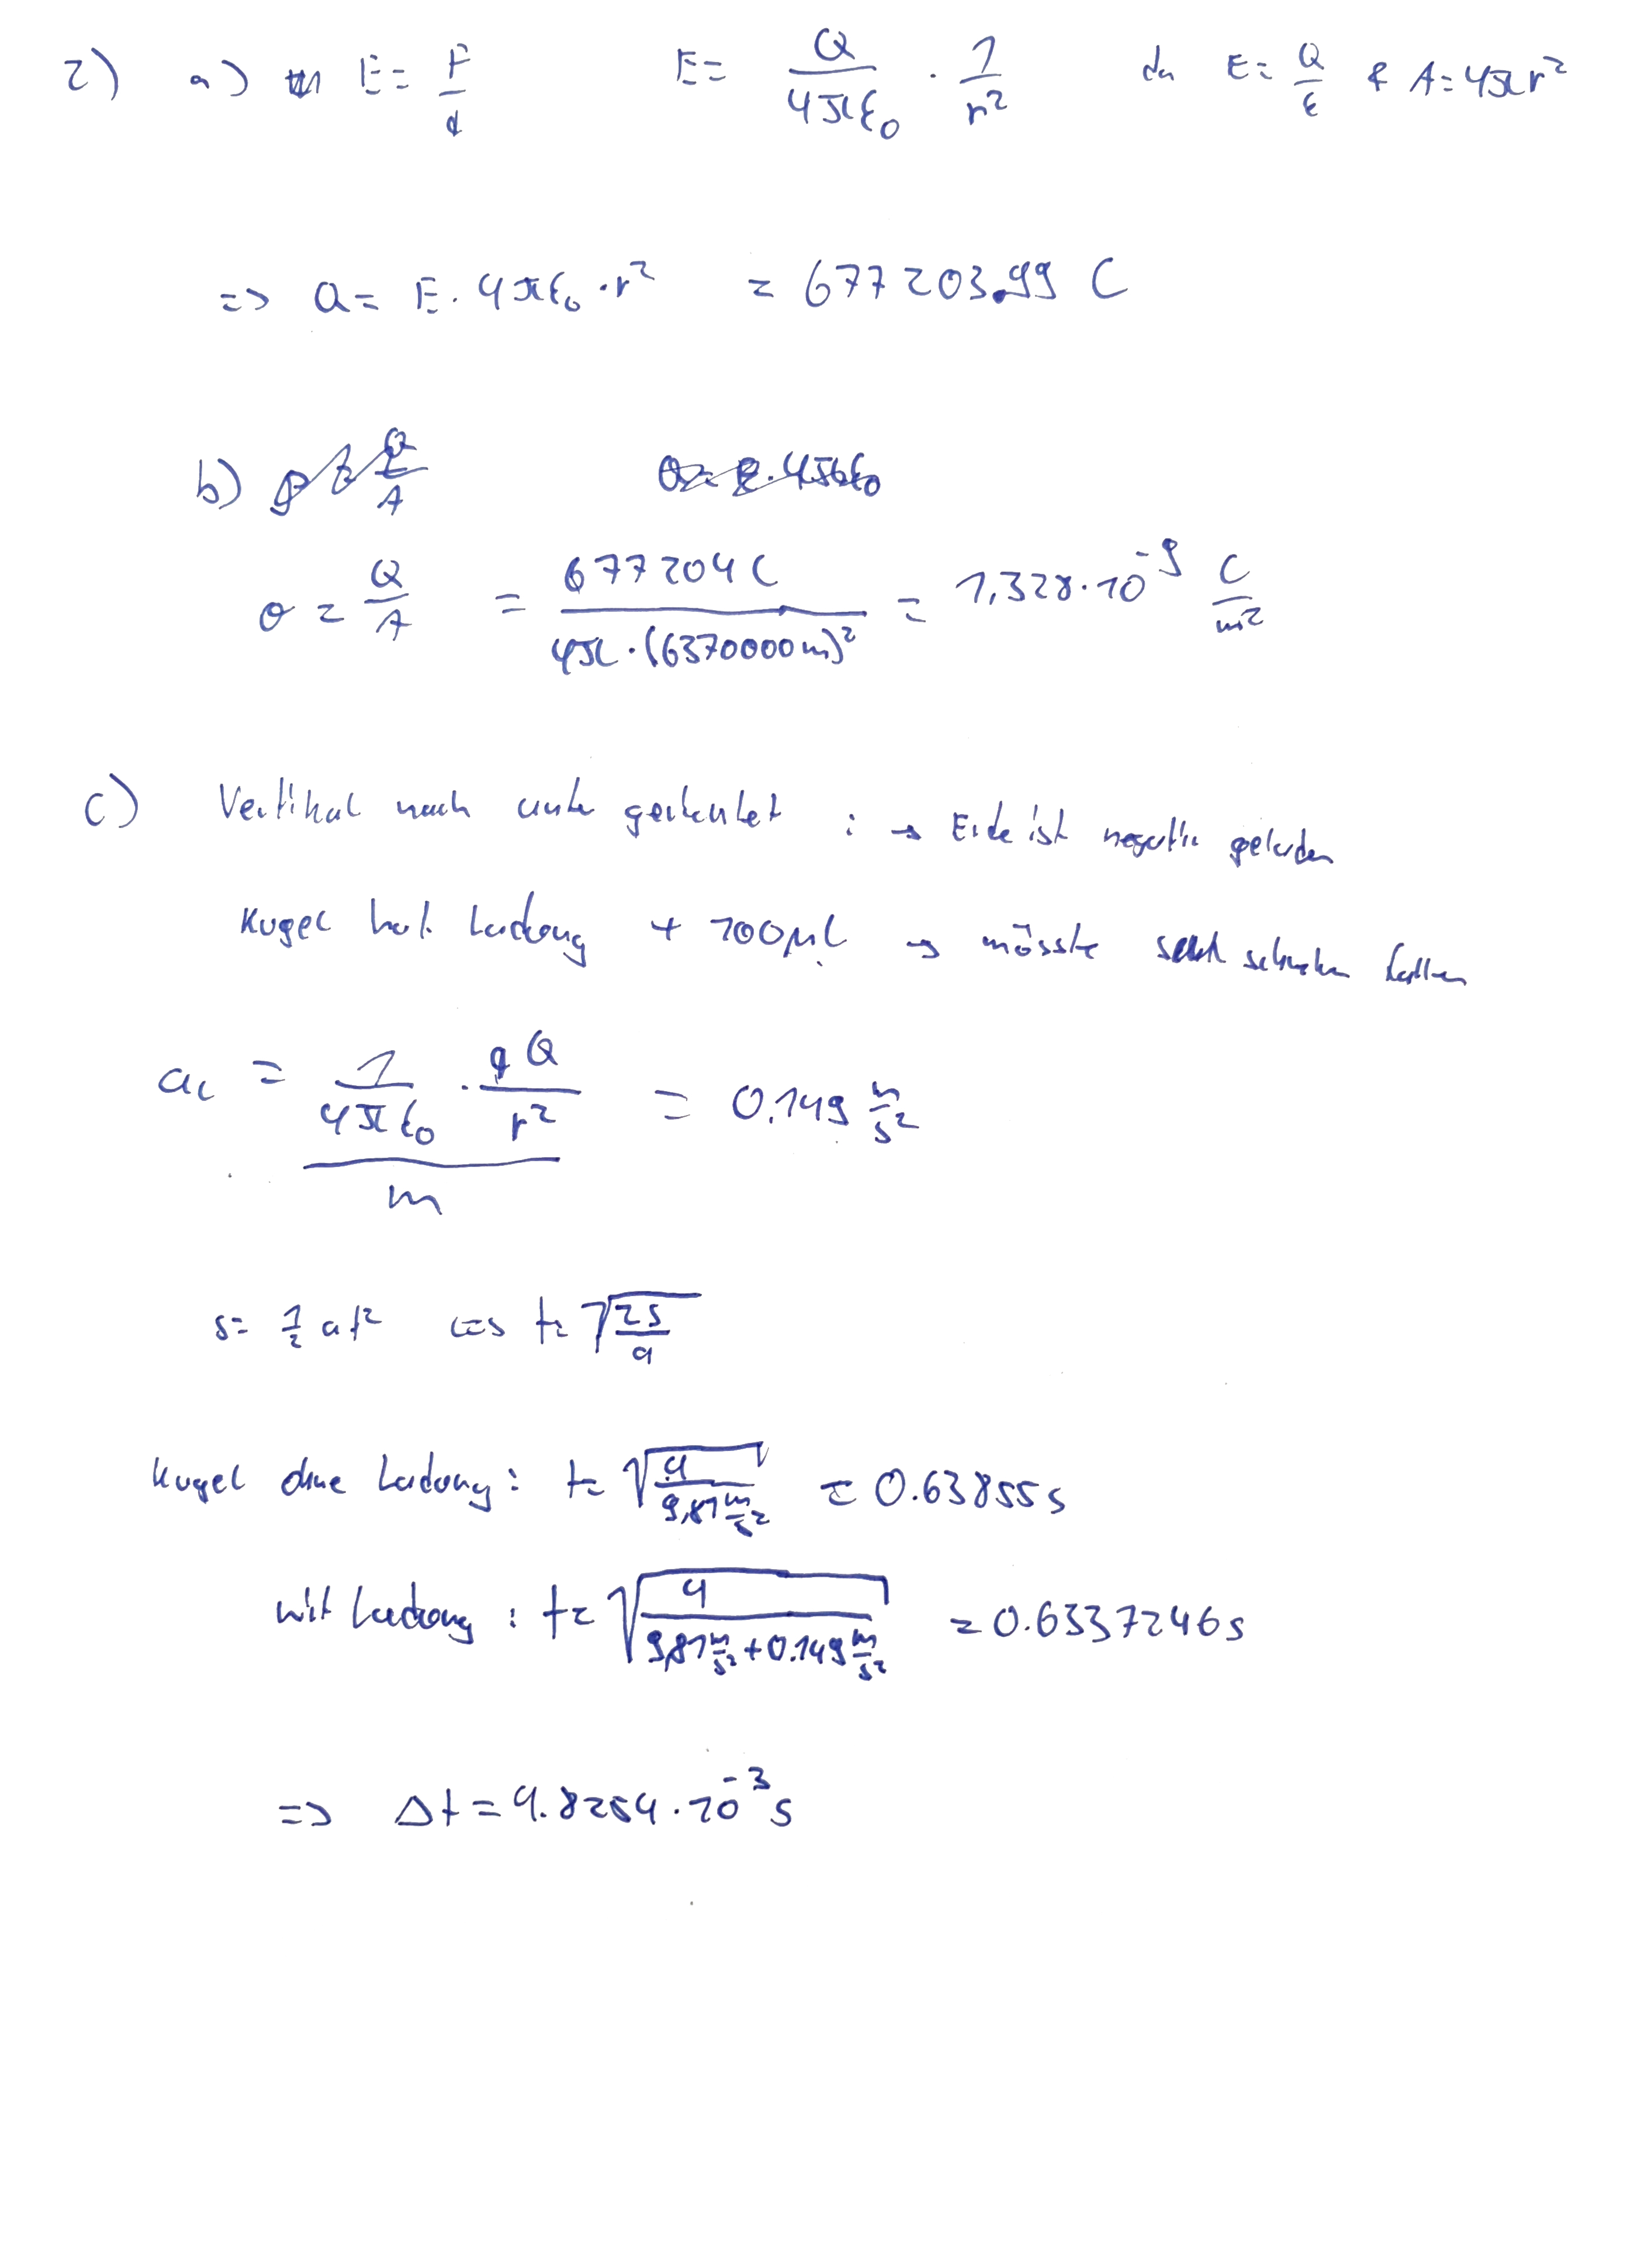 2) a) E = F/q E = Q/(4πε₀) · 1/r² da E = Q/ε & A = 4πr²
=> Q = E · 4πε₀ · r² = 677203.99 C
b)
σ = Q/A = 677204 C/(4π · (6370000m)²) = 1,328 · 10⁻⁹ C/m²
c) Vertikal nach unten gerichtet : → Erde ist negativ geladen
Kugel hat Ladung + 100μC → müsste schneller fallen
a_c = (1/(4πε₀) · qQ/r²)/m = 0.149 m/s²
s = ½ at² <=> t = √(2s/a)
Kugel ohne Ladung : t = √(4/(9,81 m/s²)) = 0.63855 s
mit Ladung : t = √(4/(9,81 m/s² + 0.149 m/s²)) = 0.6337246 s
=> Δt = 4.8254 · 10⁻³ s